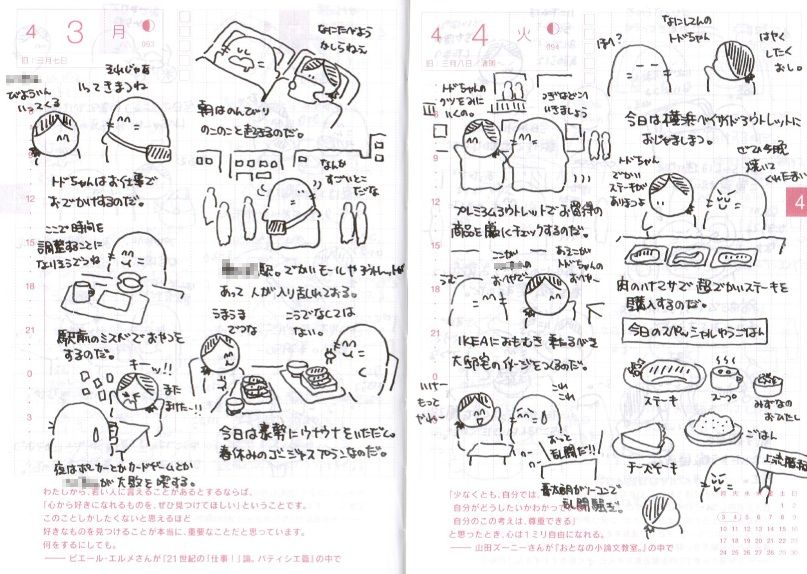 4 3 月
093
旧|三月七日
びよういん
いってくる
それじゃあ
いってきまつね
トドちゃんはお仕事で
おでかけするのだ。
ここで時間を
調整することに
なりそうでつね
駅前のミスドでおやつを
するのだ。
キーッ!!
また
また〜!!
夜はポーカーとかカードゲームとか
が大敗を喫する。
なにたべよう
かしらねえ
朝はのんびり
のこのこと起きるのだ。
なんか
すごいとこ
だな
駅。でかいモールやアウトレットが
あって人が入り乱れておる。
うまうま
でつな
こうでなくては
ない。
今日は豪勢にウナウナをいただく。
春休みのゴービジネスやうふなのだ。
わたしから、若い人に言えることがあるとするならば、
「心から好きになれるものを、ぜひ見つけてほしい」ということです。
このことしかしたくないと思えるほど
好きなものを見つけることが本当に、重要なことだと思っています。
何をするにしても。
―― ピエール・エルメさんが『21世紀の「仕事!」論。パティシエ篇』の中で
4 4 火
094
旧|三月八日/清明
トドちゃんの
クツをみに
いくの。
つぎはどこへ
いきましょう
プレミアムアウトレットでお買得の
商品を厳しくチェックするのだ。
ここが
おへやで
あそこが
トドちゃんの
おへや〜
IKEAにおもむき来たるべき
大邸宅のイメージをつくるのだ。
いけー
もっと
やれ〜
これ
これ
おっと
乱闘だ!!
ほへ?
なにしてんの
トドちゃん
はやく
したく
おし。
今日は横浜ベイサイドアウトレットに
おじゃましまつ。
トドちゃん
でかい
ステーキが
ありまつよ
ぜひ今晩
焼いて
くれたまい
肉のハナマサで超でかいステーキを
購入するのだ。
今日のスペッシャルゆうごはん
ステーキ
スープ
みずなの
おひたし
チーズケーキ
ごはん
「少なくとも、自分では、
自分がどうしたいかわかって
自分のこの考えは、尊重できる」
と思ったとき、心は1ミリ自由になれる。
―― 山田ズーニーさんが『おとなの小論文教室。』の中で
4